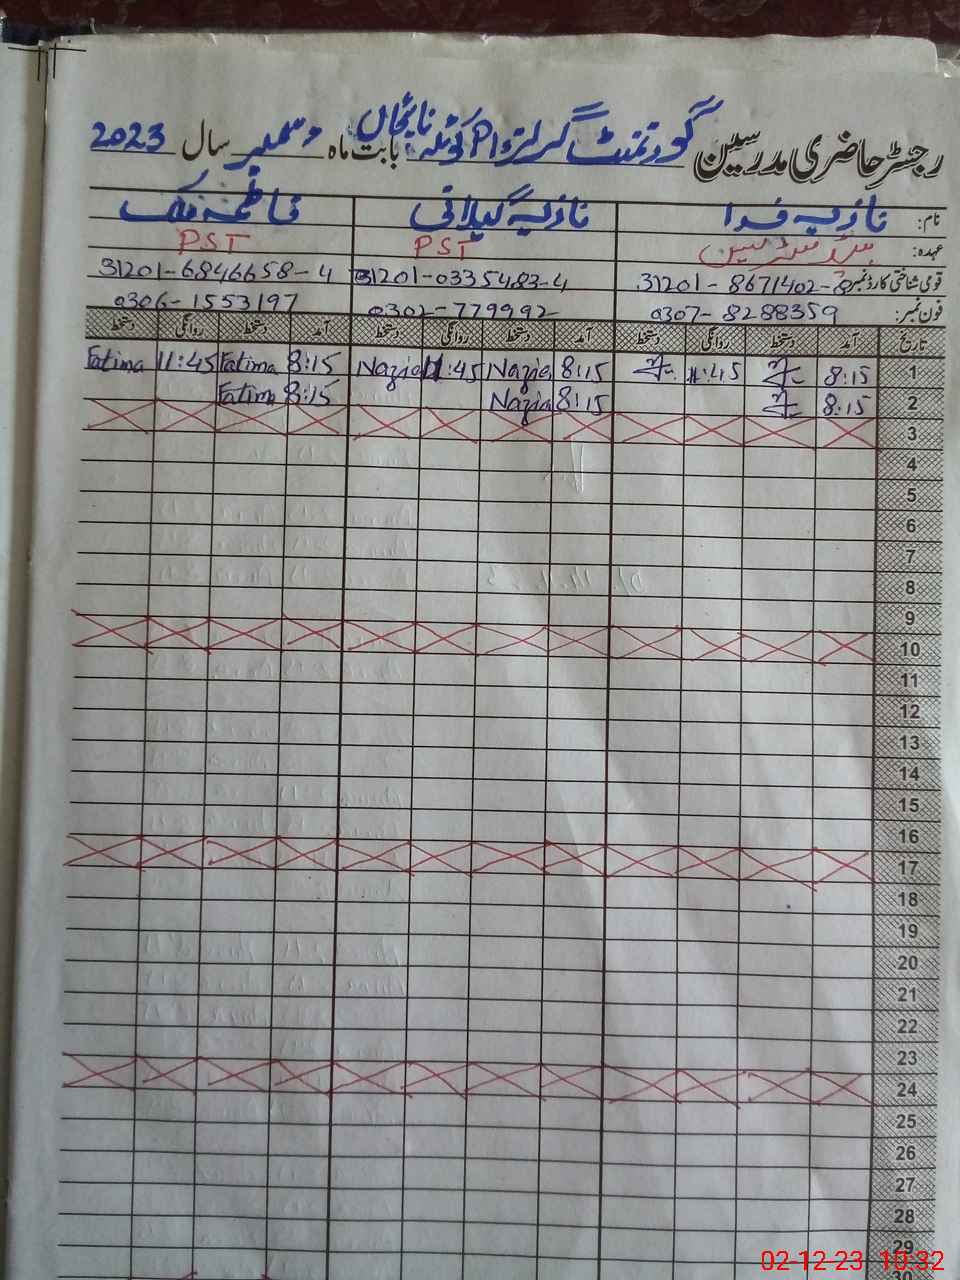 رجسٹر حاضری مدرسین گورنمنٹ گرلز P/S کوٹلہ بابت ماہ دسمبر سال 2023
نام: نازیہ فدا نازیہ گیلانی فاطمہ ملک
عہدہ: ہیڈ مسٹریس PST PST
قومی شناختی کارڈ نمبر: 31201-0335483-4 31201-6846658-4
فون نمبر: 0307-8288359 0302-779992 0306-1553197
تاریخ آمد دستخط روانگی دستخط آمد دستخط روانگی دستخط آمد دستخط روانگی دستخط
1 8:15 11:45 8:15 Nazia 11:45 Nazia 8:15 Fatima 11:45 Fatima
2 8:15 8:15 Nazia 8:15 Fatima
3
4
5
6
7
8
9
10
11
12
13
14
15
16
17
18
19
20
21
22
23
24
25
26
27
28
29
30
02-12-23 10:32